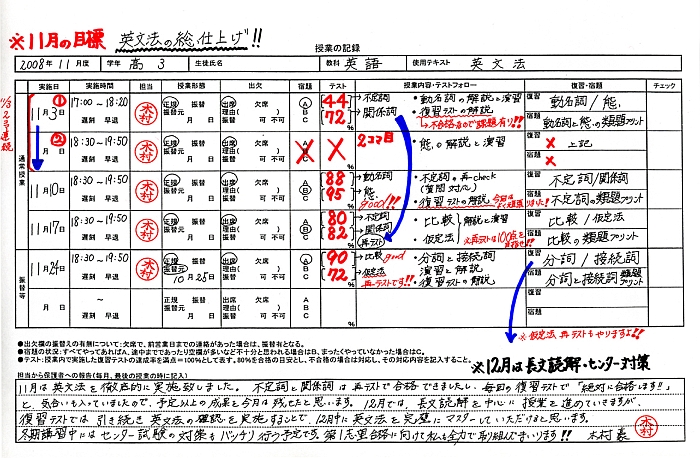 ※11月の目標 英文法の総仕上げ!!
授業の記録
2008年 11月度 学年 高3 生徒氏名 教科 英語 使用テキスト 英文法
実施日 実施時間 担当 授業形態 出欠 宿題 テスト 授業内容・テストフォロー 復習・宿題 チェック
通常授業
① 11月3日 17:00〜18:20 遅刻 早退 木村 正規 振替 振替元 月 日 出席 欠席 理由( ) 振替 可 不可 A B C 44 72 % →不定詞 →関係詞 ・動名詞の解説と演習 ・復習テストの解説 →不合格なので課題有り!! 復習 動名詞/態 宿題 動名詞と態の類題プリント
② 月 日 18:30〜19:50 遅刻 早退 木村 正規 振替 振替元 月 日 出席 欠席 理由( ) 振替 可 不可 A B C × × 2コマ目 ・態の解説と演習 復習 × 上記 宿題 ×
11月10日 18:30〜19:50 遅刻 早退 木村 正規 振替 振替元 月 日 出席 欠席 理由( ) 振替 可 不可 A B C 88 95 % →動名詞 →態 good!! ・不定詞の再check (質問対応) ・復習テストの解説 復習 不定詞/関係詞 宿題 不定詞の類題プリント
11月17日 18:30〜19:50 遅刻 早退 木村 正規 振替 振替元 月 日 出席 欠席 理由( ) 振替 可 不可 A B C 80 82 % →不定詞 →関係詞 (再テスト) ・比較 ・仮定法 解説と演習 復習 比較/仮定法 宿題 比較の類題プリント
振替等
11月24日 18:30〜19:50 遅刻 早退 木村 正規 振替 振替元 10月25日 出席 欠席 理由( ) 振替 可 不可 A B C 90 72 % →比較 good →仮定法 再テストです!! ・分詞と接続詞 演習と解説 ・復習テストの解説 復習 分詞/接続詞 宿題 分詞と接続詞 類題プリント
月 日 〜 遅刻 早退 正規 振替 振替元 月 日 出席 欠席 理由( ) 振替 可 不可 A B C % 復習 宿題
※仮定法再テストもやりますよ!!
●出欠欄の振替えの有無について:欠席で、前営業日までの連絡があった場合は、振替有となる。
●宿題の状況:すべてやってあればA、途中までであったり空欄が多いなど不十分と思われる場合はB、まったくやっていなかった場合はC。
●テスト:授業内で実施した復習テストの達成率を満点=100%として表す。80%を合格の目安とし、不合格の場合は対応し、その対応内容を記入すること。
※12月は長文読解・センター対策
担当から保護者への報告(毎月、最後の授業の時に記入)
11月は英文法を徹底的に実施致しました。不定詞と関係詞は再テストで合格できましたし、毎回の復習テストで「絶対に合格します!!」
と、気合いも入っていましたので、予定以上の成果と今月は残せたと思います。12月では、長文読解を中心に授業を進めていきますが、
復習テストでは引き続き英文法の確認を実施することで、12月中に英文法を完璧にマスターしていただけると思います。
冬期講習中にはセンター試験の対策もバッチリ行う予定です。第1志望合格に向けて私も全力で取り組んでまいります!! 木村 木村